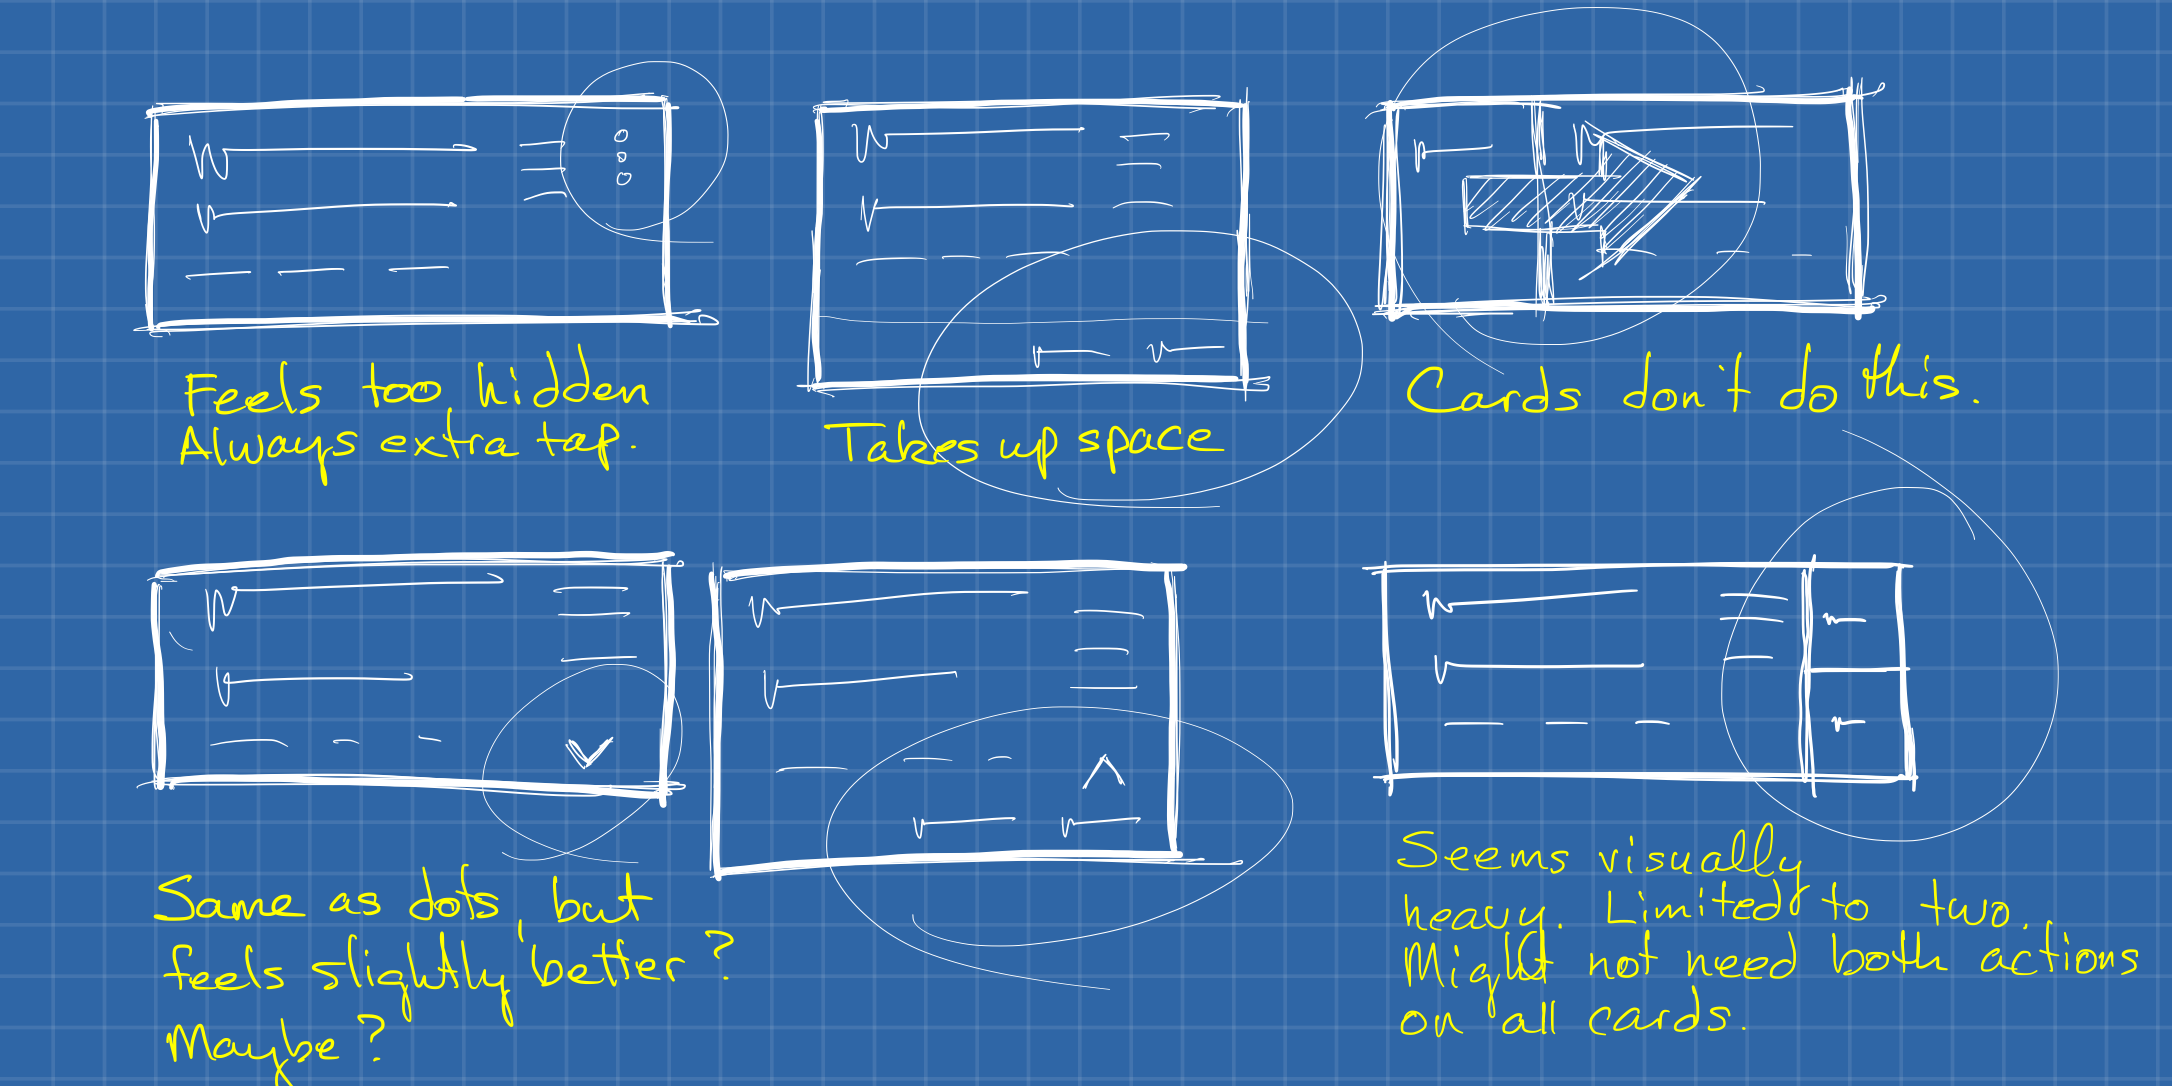 Feels too hidden
Always extra tap.
Takes up space
Cards don't do this.
Same as dots, but
feels slightly better?
Maybe?
Seems visually
heavy. Limited to two.
Might not need both actions
on all cards.